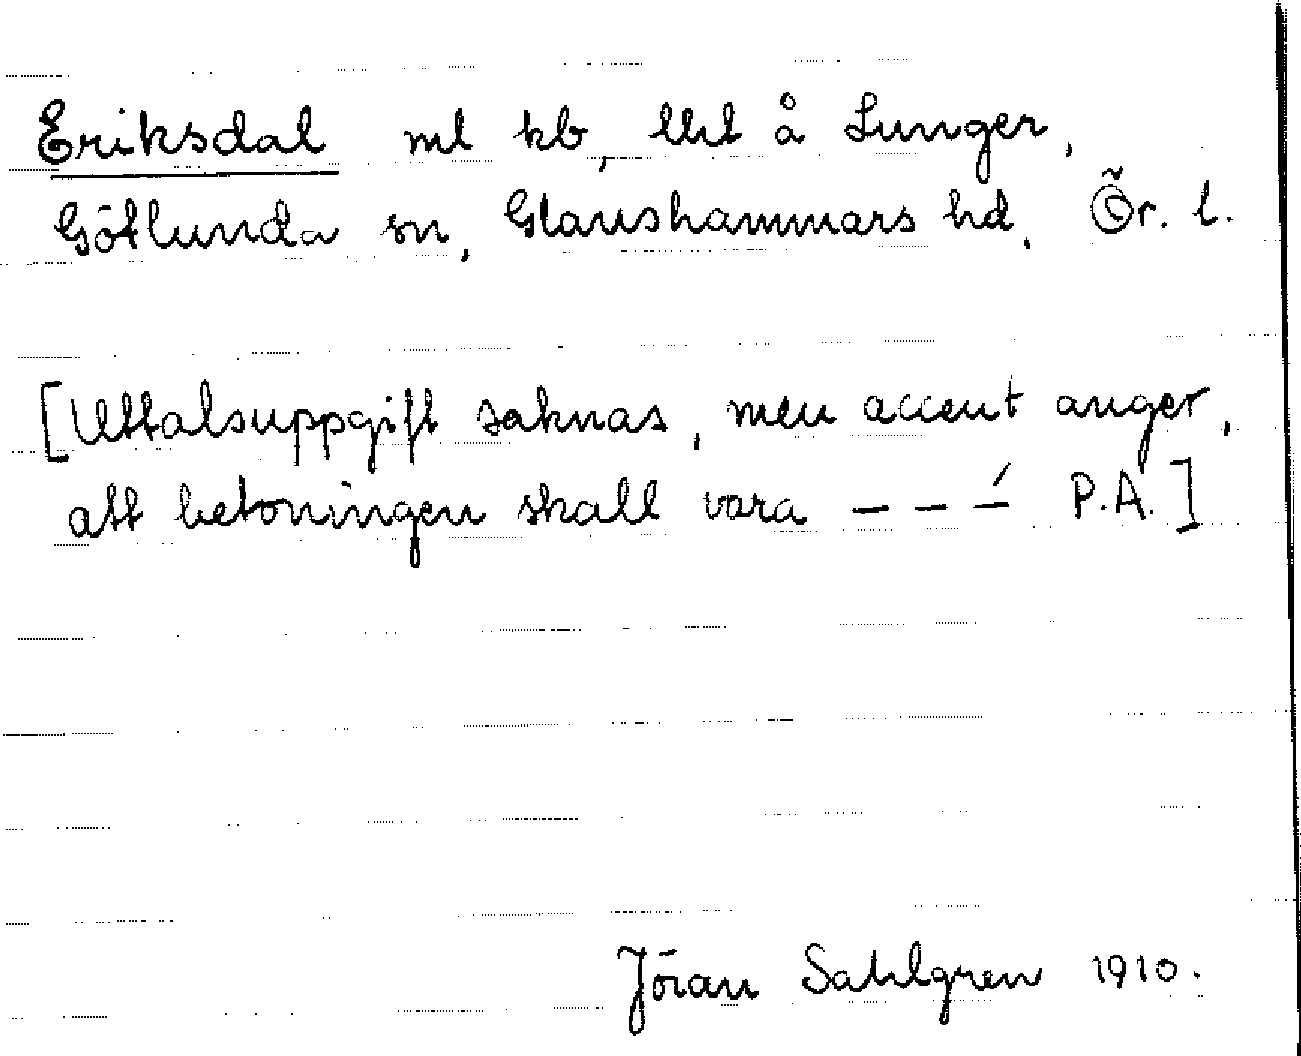 Eriksdal ml kb, lht å Lunger,
Götlunda sn, Glanshammars hd, Ör. l.
[Uttalsuppgift saknas, men accent anger,
att betoningen skall vara – – –́ P.A.]
Jöran Sahlgren 1910.